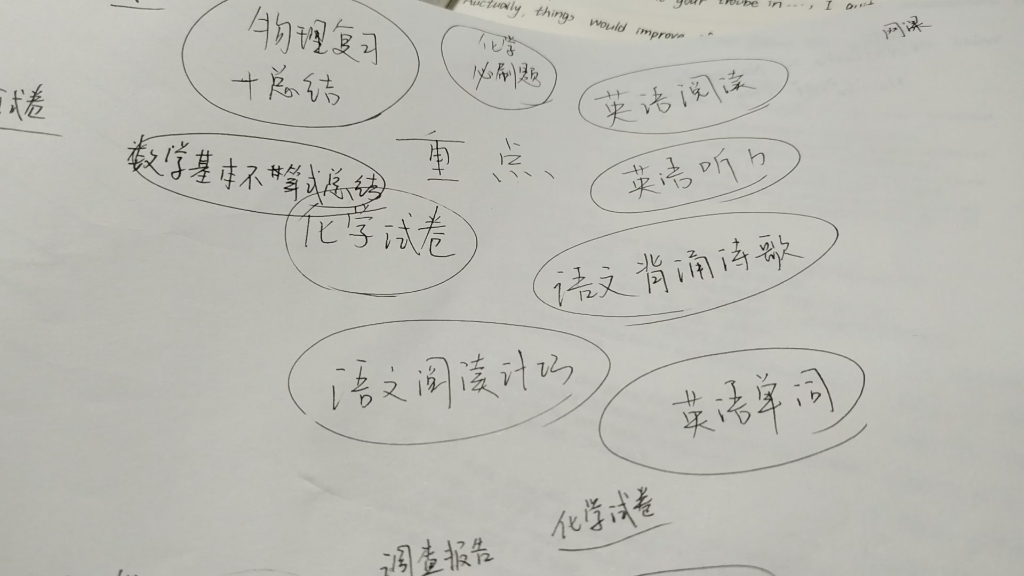 Actually, things would improve
网课
物理复习
+总结
化学
必刷题
英语阅读
试卷
数学基本不等式总结
重点
英语听力
化学试卷
语文背诵诗歌
语文阅读计巧
英语单词
化学试卷
调查报告